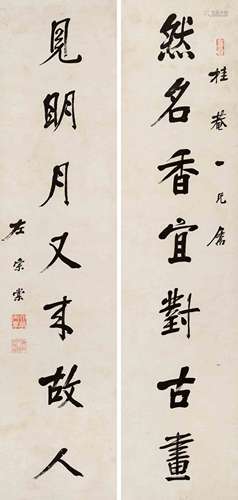 桂菴一兄屬
然名香宜對古畫
見明月又來故人
左宗棠